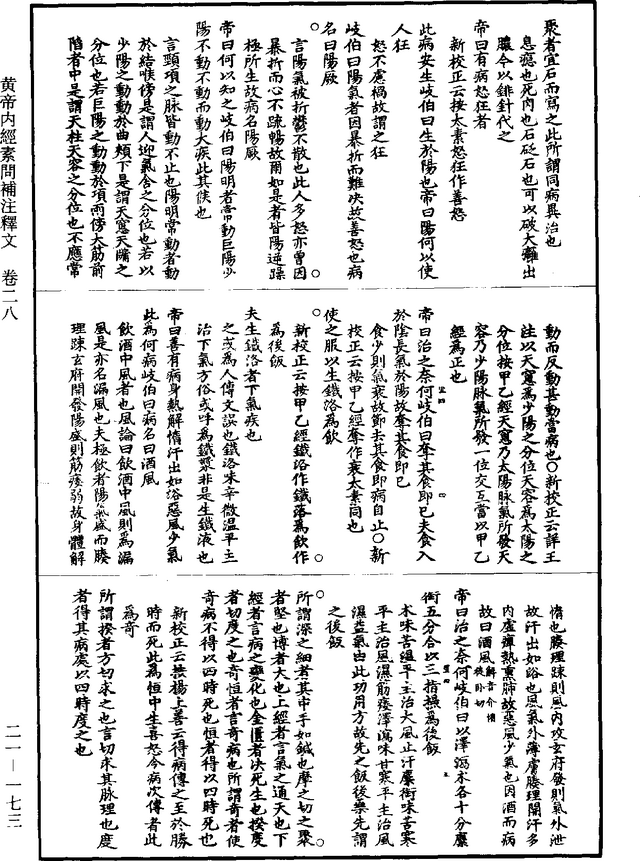 黄帝内經素問補注釋文　卷二八
聚者宜石而寫之此所謂同病異治也
息癰也死肉也石砭石也可以破大癰出
膿今以䤵針代之
帝曰有病怒狂者
新校正云按太素怒狂作善怒
此病安生岐伯曰生於陽也帝曰陽何以使
人狂
怒不慮禍故謂之狂
岐伯曰陽氣者因暴折而難決故善怒也病
名曰陽厥
言陽氣被折鬱不散也此人多怒亦曾因
暴折而心不疏暢故爾如是者皆陽逆躁
極所生故病名陽厥
帝曰何以知之岐伯曰陽明者常動巨陽少
陽不動不動而動大疾此其候也
言頸項之脉皆動不止也陽明常動者動
於結喉傍是謂人迎氣舍之分位也若以
少陽之動動於曲頰下是謂天窻天牖之
分位也若巨陽之動動於項兩傍大筋前
陷者中是謂天柱天容之分位也不應常
動而反動甚動當病也○新校正云詳王
注以天窻爲少陽之分位天容爲太陽之
分位按甲乙經天窻乃太陽脉氣所發天
容乃少陽脉氣所發一位交互當以甲乙
經爲正也
帝曰治之奈何岐伯曰奪其食即已夫食入
於陰長氣於陽故奪其食即已
食少則氣衰故節去其食即病自止○新
校正云按甲乙經奪作衰太素同也
使之服以生鐵洛爲飲
新校正云按甲乙經鐵洛作鐵落爲飲作
爲後飯
夫生鐵洛者下氣疾也
之或爲人傳文誤也鐵洛味辛微溫平主
治下氣方俗或呼爲鐵漿非是生鐵液也
帝曰善有病身熱解惰汗出如浴惡風少氣
此爲何病岐伯曰病名曰酒風
飲酒中風者也風論曰飲酒中風則爲漏
風是亦名漏風也夫極飲者陽氣盛而腠
理踈玄府開發陽盛則筋痿弱故身體解
惰也腠理踈則風內攻玄府發則氣外泄
故汗出如浴也風氣外薄膚腠理開汗多
內虛癉熱熏肺故惡風少氣也因酒而病
故曰酒風
帝曰治之奈何岐伯曰以澤瀉朮各十分麋
銜五分合以三指撮爲後飯
朮味苦溫平主治大風止汗麋銜味苦寒
平主治風濕筋痿澤瀉味甘寒平主治風
濕益氣由此功用方故先之飯後藥先謂
之後飯
所謂深之細者其中手如鍼也摩之切之聚
者堅也博者大也上經者言氣之通天也下
經者言病之變化也金匱者決死生也揆度
者切度之也奇恒者言奇病也所謂奇者使
奇病不得以四時死也恒者得以四時死也
新校正云按楊上善云得病傳之至於勝
時而死此爲恒中生喜怒今病次傳者此
爲奇
所謂揆者方切求之也言切求其脉理也度
者得其病處以四時度之也
二一—一七三